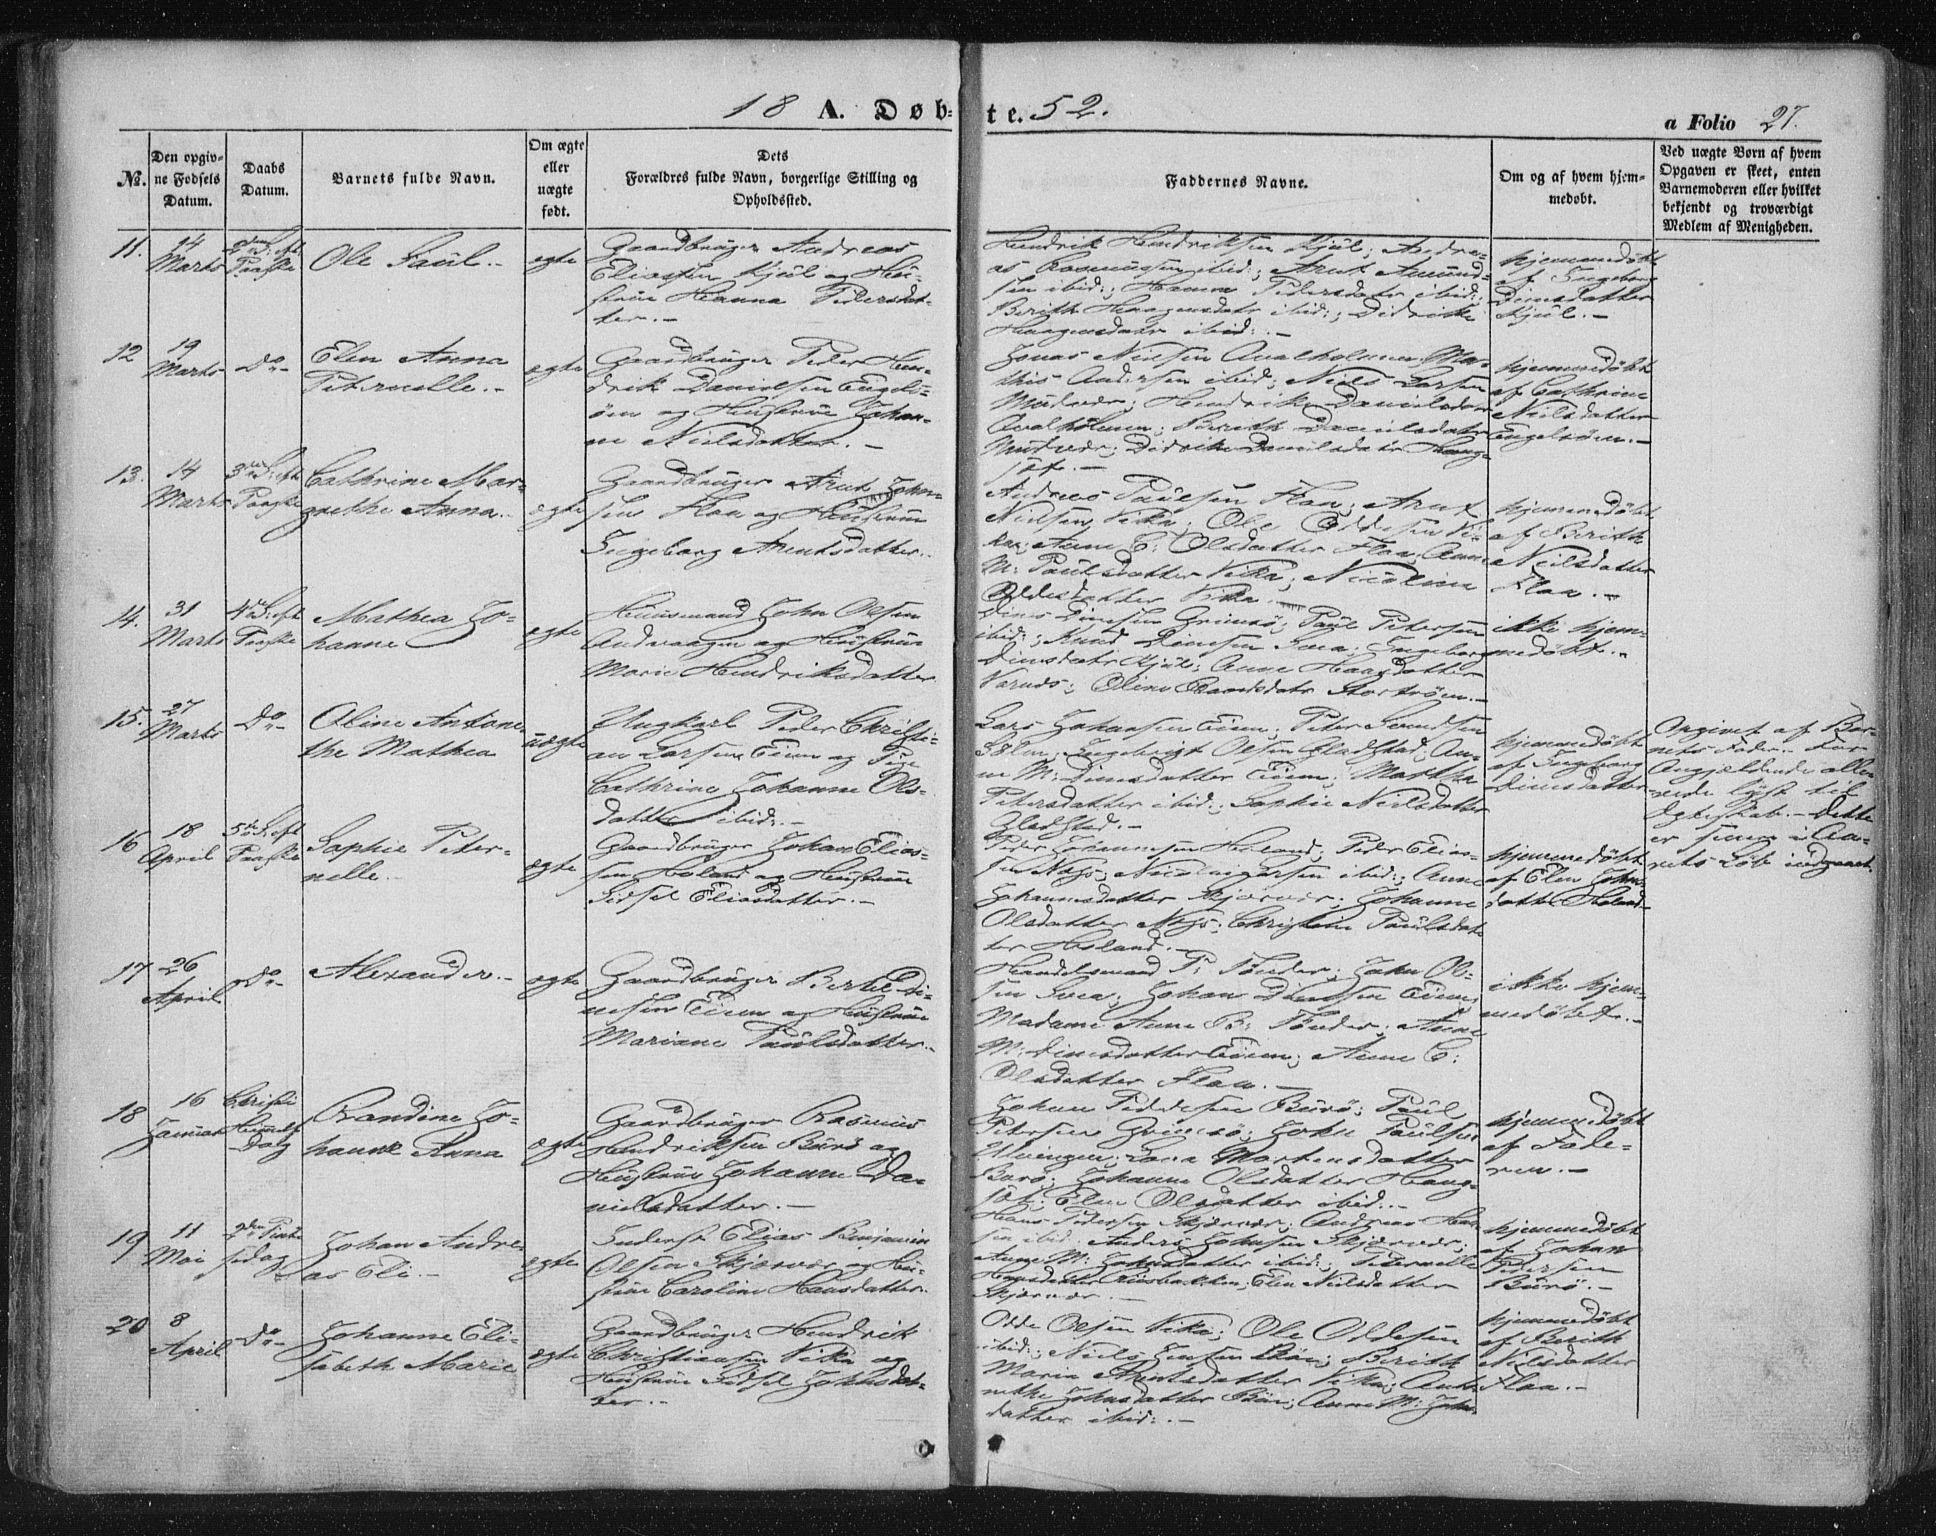 18 A. Døb-te. 52.
a Folio 27.
No.
Den opgiv-
ne Fødsels
Datum.
Daabs
Datum.
Barnets fulde Navn.
Om ægte
eller
uægte
født.
Dets
Forældres fulde Navn, borgerlige Stilling og
Opholdssted.
Faddernes Navne.
Om og af hvem hjem-
medøbt.
Ved uægte Børn af hvem
Opgaven er skeet, enten
Barnemoderen eller hvilket
bekjendt og troværdigt
Medlem af Menigheden.
11.
14
Marts
2den S: eft
Paaske
Ole Paul.-
egte
Gaardbruger Andreas
Eliassen Kjul og Hu-
strue Hanna Pedersdat-
ter.-
Hendrik Hendriksen Kjul; Andre-
as Rasmussen ibid:; Arnt Amund-
sen ibid:; Hanna Pedersdatr ibid:;
Berith Haagensdatr ibid:; Didrikke
Haagensdatr ibid:.-
hjemmedøbt
af Ingeborg
Dinesdatter
Kjul.-
12
19
Marts
Do-
Elen Anna
Peternelle.-
egte
Gaardbruger Peder Hen-
drik Danielsen Engels-
øen og Hustrue Johan-
ne Nielsdatter.-
Jonas Nielsen Qvalholmen; Ma-
this Andersen ibid; Niels Larsen
Mudvær; Hendrikke Danielsdatr
Qvalholmen; Berith Danielsdatr
Mudvær; Didrikke Danielsdatr Haug-
søt.-
hjemmedøbt
af Cathrine
Nielsdatter
Engelsøen.-
13.
14
Marts
3die S: eft
Paaske
Cathrine Mar-
grethe Anna.-
egte
Gaardbruger Arnt John-
sen Floa og Hustrue
Ingeborg Arentsdatter.-
Andreas Paulsen Floa; Arnt
Nielsen Vika; Ole Oddesen Vi-
ka; Anne C: Olsdatter Floa; Anne
M: Paulsdatter Vika; Nicoline
Oddesdatter Vika.
hjemmedøbt
af Berith
Nielsdatter
Floa.-
14.
31
Marts
4de S: eft
Paaske
Mathea Jo-
hanne
egte
Huusmand John Olsen
Andvaagen og Hustrue
Marie Hendriksdatter
Dines Dinesen Grimsø; Paul Petersen
ibid:; Knud Dinesen Svea; Ingeborg
Dinesdatr Kjul; Anne Haagsdatter
Varnds; Oline Randsdatr Storstrøen.-
ikke hjem-
medøbt.-
15.
27
Marts
Do-
Oline Antone-
the Mathea
uægte
Ungkarl Peder Christi-
an Larsen Eien og Pige
Cathrine Johanne Ols-
datter ibid:.-
Lars Johansen Eien; Peter Svendsen
Sæln; Ingebrigt Olsen Gladstad; An-
ne M: Dinesdatter Eien; Martha
Petersdatter ibid:; Sophie Nielsdatter
Gladstad.-
hjemmedøbt
af Ingeborg
Dinesdatter
Angivet af Bar-
nets Fader. For
Angjældende alle-
rede lyst til
Egteskab.- Dette
er senere i Aa-
rets Løb indgaaet.
16
18
April
5te S: eft
Paaske
Sophie Peter-
nelle.-
ægte
Gaardbruger Johan Elias-
sen Holand og Hustrue
Sidsel Eliasdatter.-
Peder Johannesen Holand; Peder Elias-
sen Nøgs; Nicolai Larsen ibid:; Anne
Johannesdatter Skjærvær; Johanne
Olsdatter Nøgs; Christine Paulsdat-
ter Holand.-
hjemmedøbt
af Elen Johns-
datter Holand.-
17
26
April
Do-
Alexander.-
egte
Gaardbruger Bertel Di-
nesen Eien og Hustrue
Mariane Paulsdatter.-
Handelsmand P: Tønder; John Ol-
sen Svea; Johan Dinesen Eien;
Madame Anne B: Tønder; Anne
M: Dinesdatter Eien; Anne C:
Olsdatter Floa.-
ikke hjem-
medøbt.-
18
16
Januar
Christi
Himmelf
Dag
Randine Jo-
hanne Anna
ægte
Gaardbruger Rasmus
Hendriksen Burø og
Hustrue Johanne Da-
nielsdatter.-
Johan Pedersen Burø; Paul
Petersen Grimsø; John Paulsen
Ulvengen; Lova Mortensdatter
Burø; Johanne Olsdatter Haug-
søt; Elen Olsdatter ibid:.-
hjemmedøbt
af Fade-
ren.-
19
11
Mai
2den Pint-
sedag
Johan Andre-
as Eli.-
egte
Inderst Elias Benjamin
Olsen Skjærvær og Hu-
strue Caroline Hansdatter.
Hans Pedersen Skjærvær; Andreas Han-
sen ibid; Anders Johnsen Skjærvær;
Anne M: Johnsdatter ibid:; Peternelle
Hansdatter; Elen Nielsdatter
Skjærvær.-
hjemmedøbt
af Johan
Pedersen
Burø.-
20
8
April
Do-
Johanne Eli-
sabeth Marie
ægte
Gaardbruger Hendrik
Christiansen Vika og
Hustrue Sidsel Johnsdat-
ter.-
Odde Olsen Vika; Ole Oddesen
ibid:; Niels Jensen Bøn; Berith
Maria Arntsdatter Vika; Anne
Johnsdatter Bøn; Anne M: Johns-
datter ibid:.-
hjemmedøbt
af Berith
Nielsdatter
Floa.-